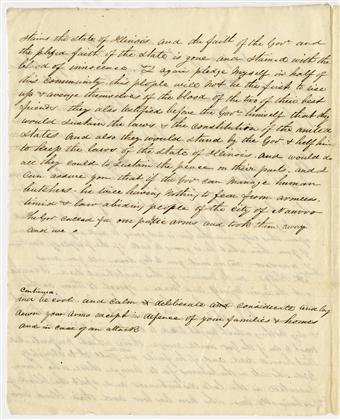 stains the state of Illinois. and the faith of the Govr and
the pledged faith of the state is gone and stained with the
blood of innocence I again pledge myself in half of
this community this people will not be the first to rise
up & avenge themselves of the blood of the two of their best
friends they also certified before the Govr himself that they
would sustain the laws & the constitution of the united
States and also they would stand by the Govr & help him
to keep the laws of the state of Illinois. and would do
all they could to sustain the peace on their parts, and I
can assure you that if the Govr can manage human
butchers. he will have nothing to fear from armless.
timid & law abiding people of the city of Nauvoo
The Govr called for our public arms and took them away
and we
Continued.
and be cool. and calm & deliberate and considerate and lay
down your arms except in defence of your families & homes
and in case of an attack